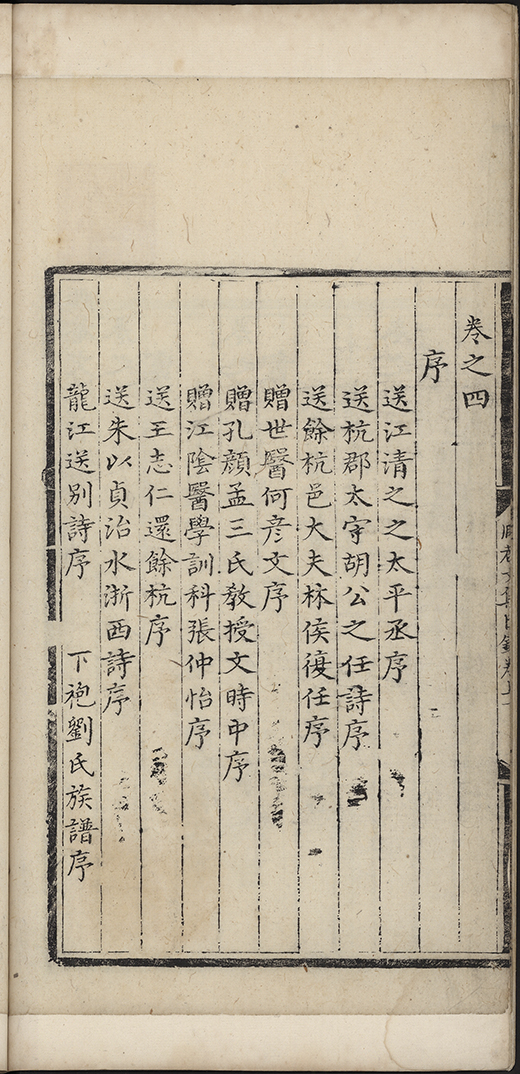 卷之四
序
送江清之之太平丞序
送杭郡太守胡公之任詩序
送餘杭邑大夫林侯復任序
贈世醫何彦文序
贈孔顔孟三氏教授文時中序
贈江陰醫學訓科張仲怡序
送王志仁還餘杭序
送朱以貞治水浙西詩序
龍江送别詩序 下袍劉氏族譜序